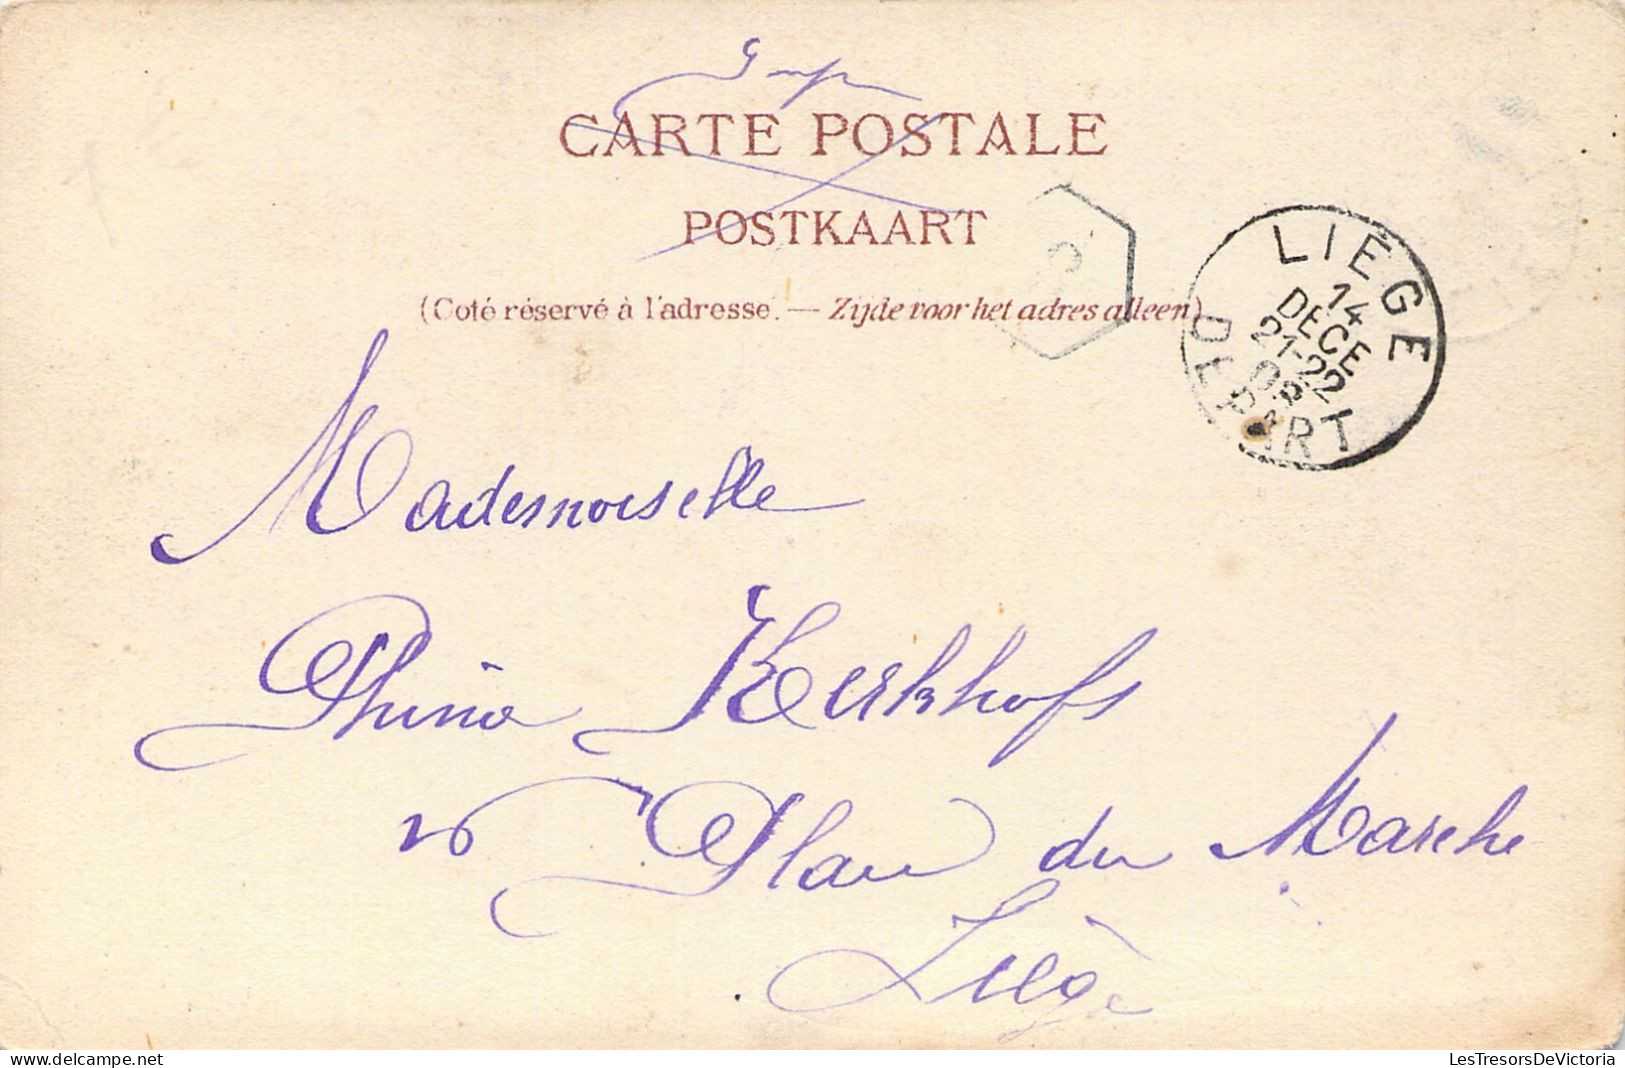 Imp
CARTE POSTALE
POSTKAART
(Coté réservé à l'adresse. — Zijde voor het adres alleen)
LIÉGE
14
DECE
21-22
DEPART
Mademoiselle
Phina Kerkhofs
Plau du Marche
Liège
delcampe.net
LesTresorsDeVictoria